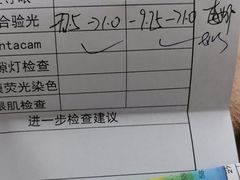 合验光 -7.25→1.0 -9.75→1.0
ntacam ✓ ✓
隙灯检查
荧光染色
眼肌检查
进一步检查建议